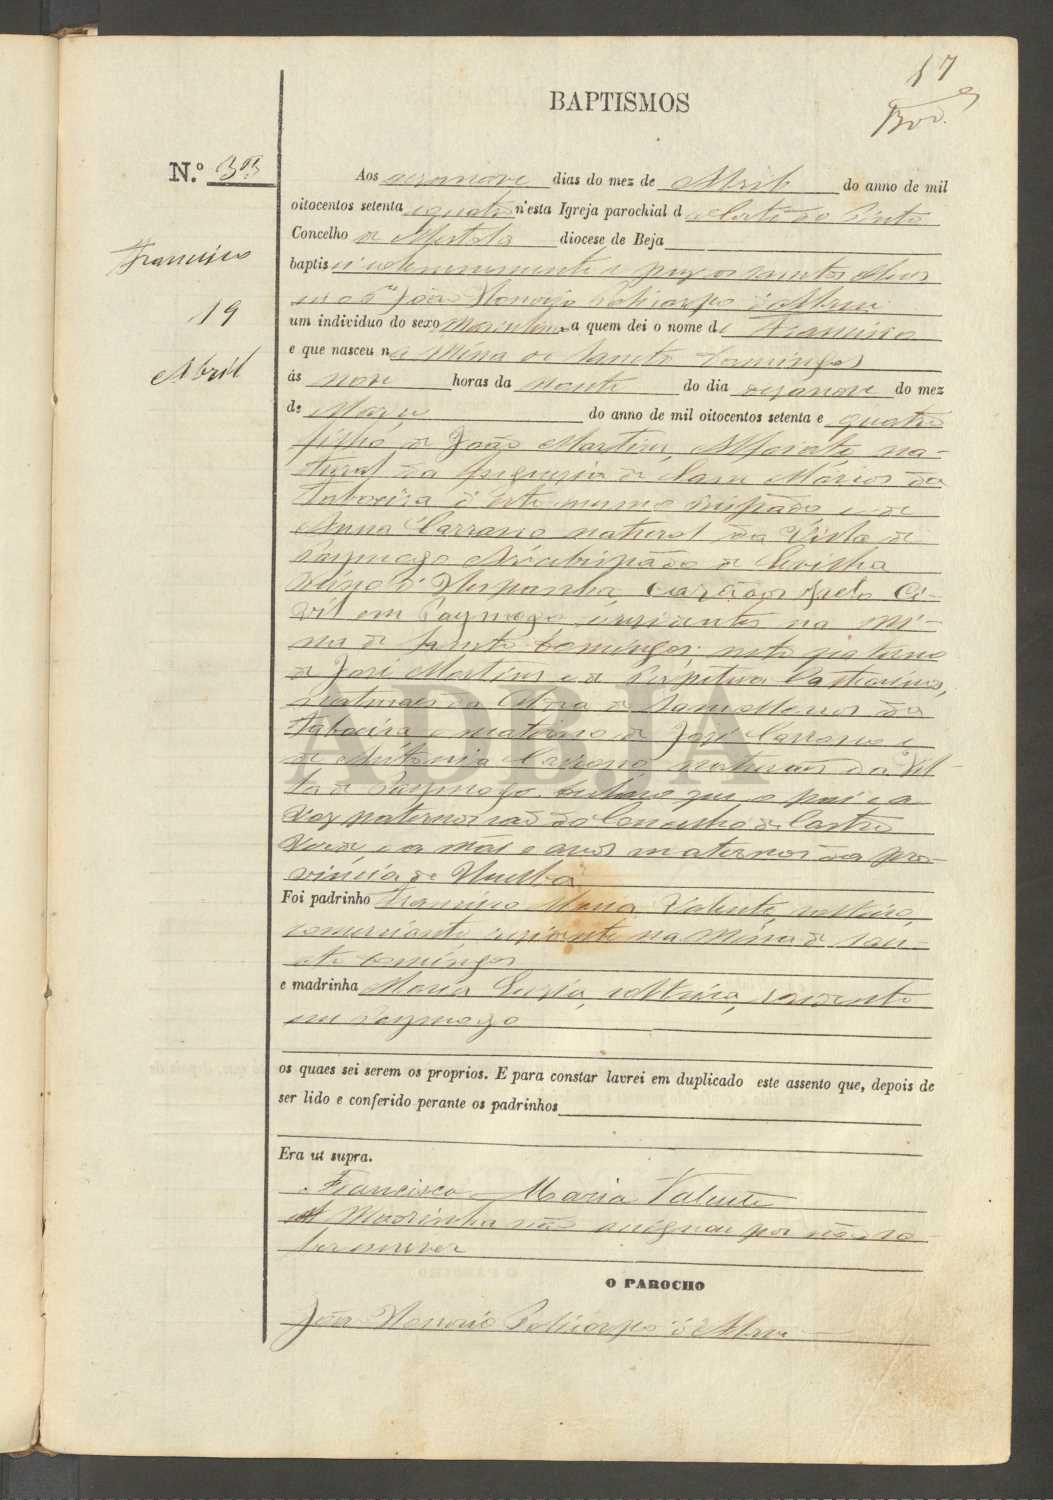 17
BAPTISMOS
N.º 33
Francisco
19
Abril
Aos dezanove dias do mez de Abril do anno de mil
oitocentos setenta e quatro n'esta Igreja parochial d
Concelho de Mertola diocese de Beja
baptisei solemnemente e puz os santos oleos
João Honorio Policarpo d'Abreu
um individuo do sexo masculino a quem dei o nome de Francisco
e que nasceu na Mina de Sancto Domingos
ás nove horas da noute do dia dezanove do mez
de Março do anno de mil oitocentos setenta e quatro
filho de João Martins, na-
tural da freguesia de Sam Márcos da
d'este mesmo bispado e de
Anna Carrasco natural da Villa de
Paymogo Arcebispado de Sevilha
reino d'Hespanha, casados pelo Ci-
vil em Paymogo, residentes na Mi-
na de Sancto Domingos; neto paterno
de José Martins e de Perpetua
naturaes da de Sam Marcos da
e materno de José Carrasco e
de Antonia naturaes da Vil-
la de Paymogo. Declaro que o pai e a
vos paternos são do Concelho de Castro
Verde e a mãe e avos maternos da pro-
vincia de Huelba
Foi padrinho Francisco Maria Valente, solteiro,
comerciante, residente na Mina de San-
cto Domingos
e madrinha Maria Luzia, solteira, residente
em Paymogo
os quaes sei serem os proprios. E para constar lavrei em duplicado este assento que, depois de
ser lido e conferido perante os padrinhos
Era ut supra.
Francisco Maria Valente
A Madrinha não assignou por não sa-
ber escrever
O PAROCHO
João Honorio Policarpo d'Abreu
ADBJA